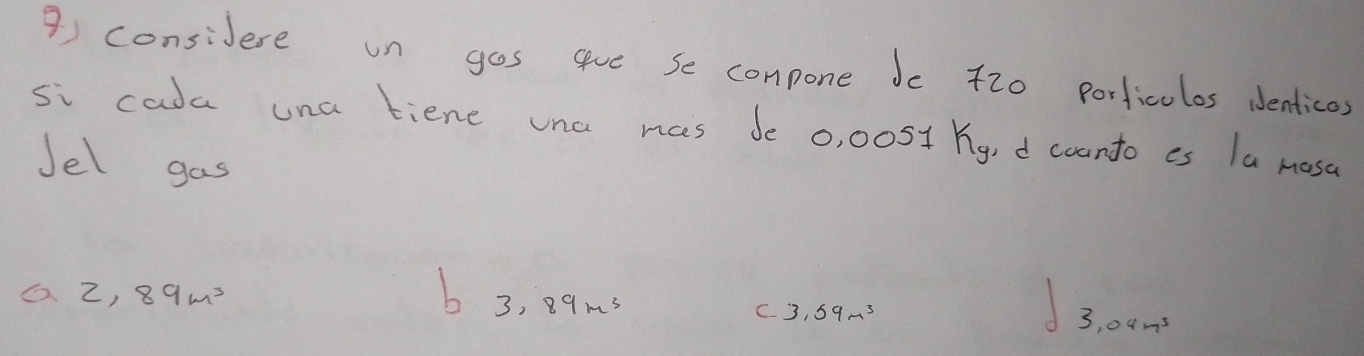 9) considere un gas que se compone de 720 particulas identicas
si cada una tiene una mas de 0,0051 Kg, d cuanto es la masa
del gas
a 2,89m³ b 3,89m³ c 3,59m³ d 3,04m³